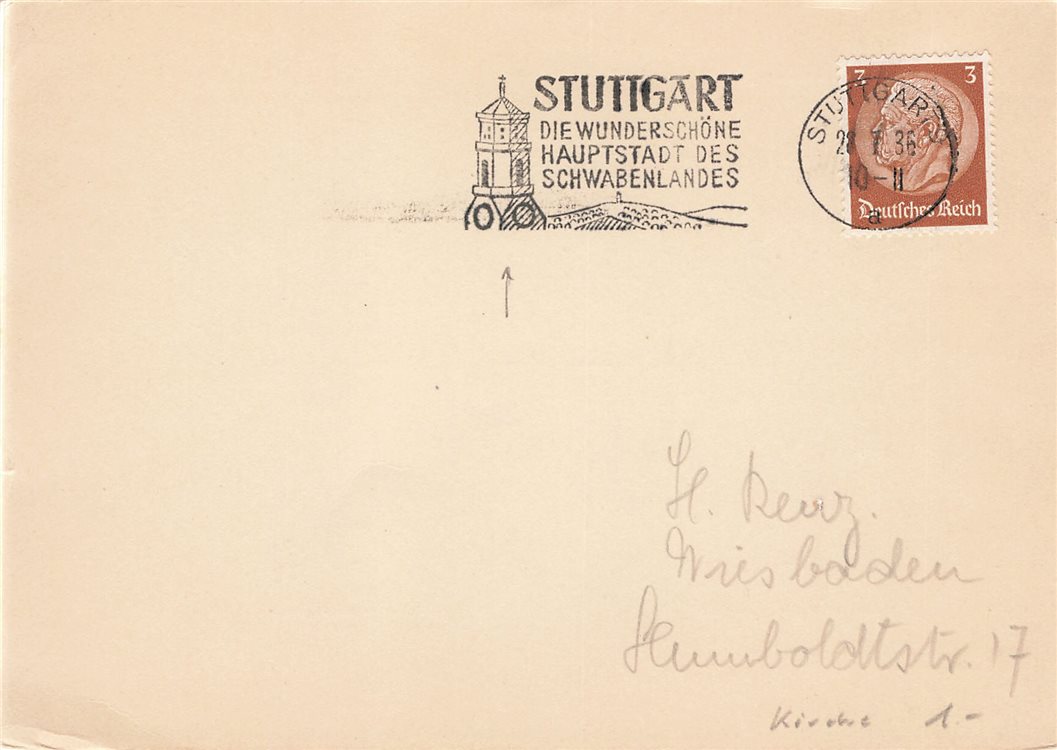 STUTTGART
DIE WUNDERSCHÖNE
HAUPTSTADT DES
SCHWABENLANDES
STUTTGART
28 7 36
10-11
a
3 3
Deutsches Reich
H. Renz.
Wiesbaden
Humboldtstr. 17
Kirche 1.-